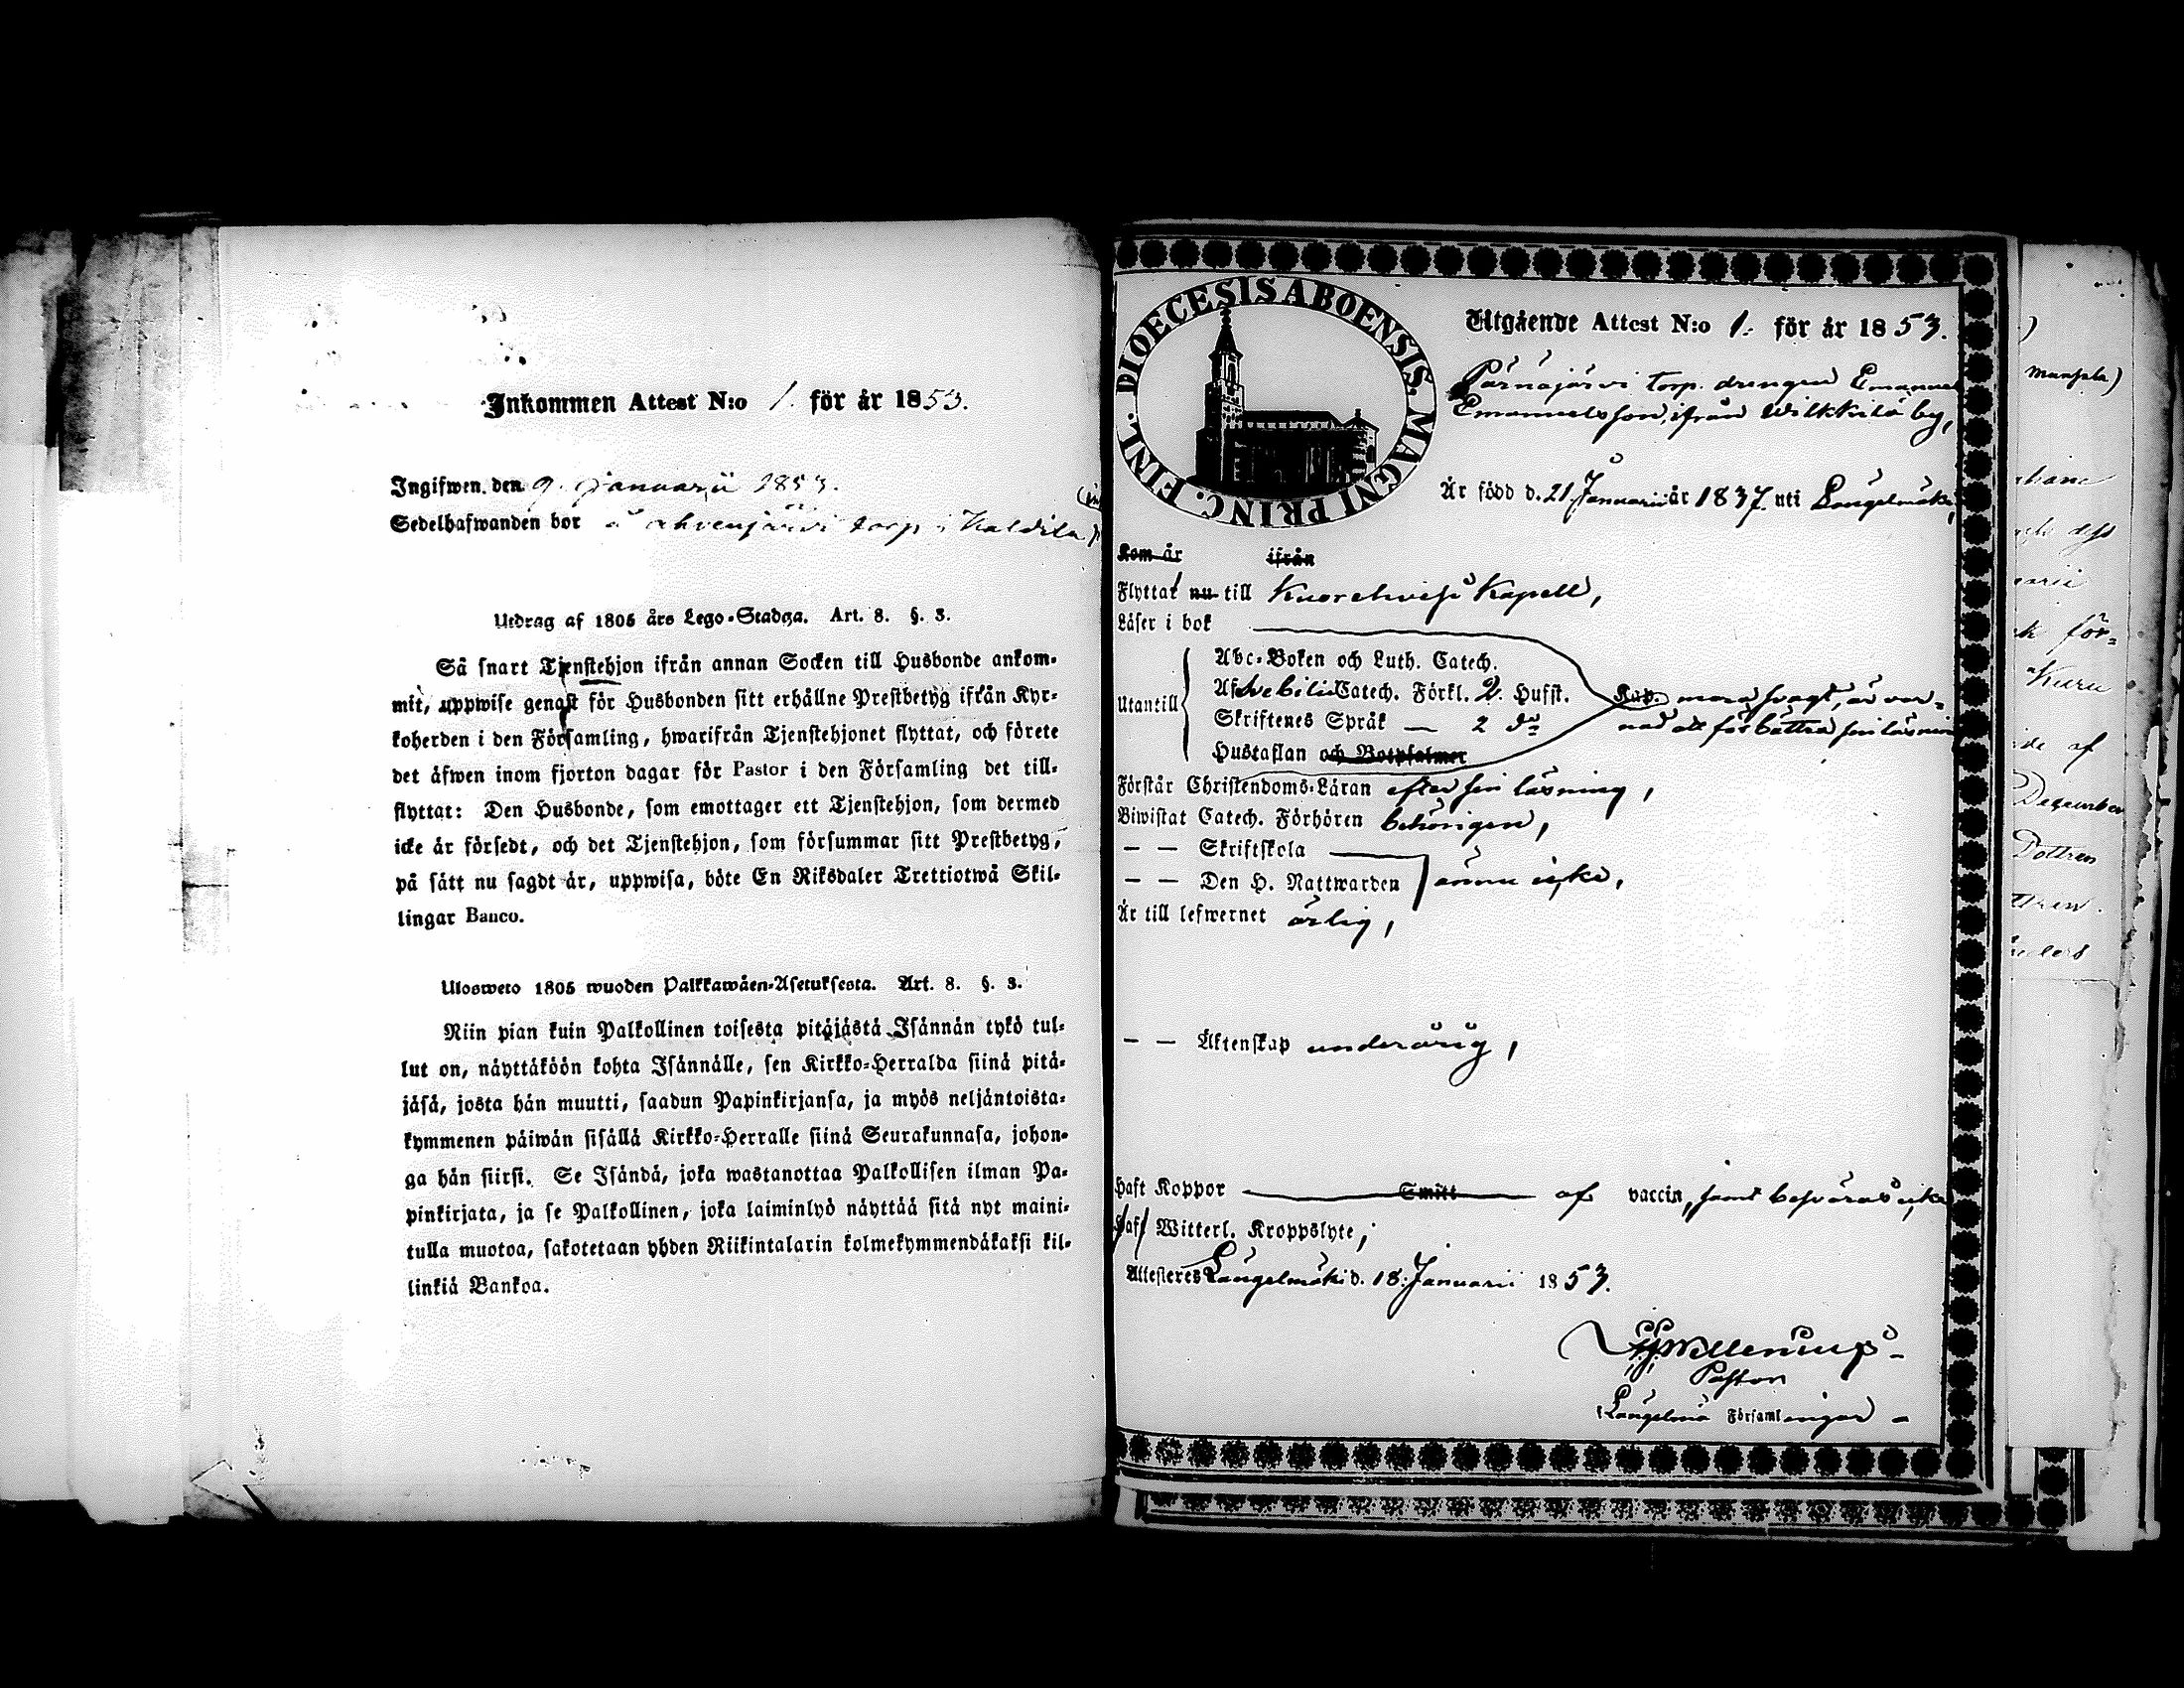 Inkommen Attest N:o 1. för år 1853.
Ingifwen den 9. Januarii 1853.
Sedelhafwanden bor å Ahvenjärvi torp i Kaldila
Utdrag af 1805 års Lego-Stadga. Art. 8. §. 3.
Så snart Tjenstehjon ifrån annan Socken till Husbonde ankom-
mit, uppwise genast för Husbonden sitt erhållne Prestbetyg ifrån Kyr-
koherden i den Församling, hwarifrån Tjenstehjonet flyttat, och förete
det äfwen inom fjorton dagar för Pastor i den Församling det till-
flyttat: Den Husbonde, som emottager ett Tjenstehjon, som dermed
icke är försedt, och det Tjenstehjon, som försummar sitt Prestbetyg,
på sätt nu sagdt är, uppwisa, böte En Riksdaler Trettiotwå Skil-
lingar Banco.
Ulosweto 1805 wuoden Palkkawäen-Asetuksesta. Art. 8. §. 3.
Niin pian kuin Palkollinen toisesta pitäjästä Isännän tykö tul-
lut on, näyttäköön kohta Isännälle, sen Kirkko-Herralda siinä pitä-
jäsä, josta hän muutti, saadun Papinkirjansa, ja myös neljäntoista-
kymmenen päiwän sisällä Kirkko-Herralle siinä Seurakunnasa, johon-
ga hän siirsi. Se Isändä, joka wastanottaa Palkollisen ilman Pa-
pinkirjata, ja se Palkollinen, joka laiminlyö näyttää sitä nyt maini-
tulla muotoa, sakotetaan yhden Riikintalarin kolmekymmendäkaksi kil-
linkiä Bankoa.
DIOECESIS ABOENSIS. MAGNI PRINC. FINL.
Utgående Attest N:o 1. för år 1853.
Pärnäjärvi torp. drengen Emanuel
Emanuelsson, ifrån Wilkkilä by,
Är född d. 21. Januarii år 1837. uti Längelmäki,
Kom år ifrån
Flyttar nu till Kuorehvesi Kapell,
Läser i bok
Utantill
Abc-Boken och Luth. Catech.
Af Svebilii Catech. Förkl. 2. Hufst.
Skriftenes Språk — 2 do
Hustaflan och Botpsalmer
Kap. svagt, är var-
nad att förbättra sin läsning
Förstår Christendoms-Läran efter sin läsning,
Biwistat Catech. Förhören behörigen,
— — Skriftskola
— — Den H. Nattwarden ännu icke,
Är till lefwernet ärlig,
— — Äktenskap underårig,
Haft Koppor Smitt af vaccin, samt besväras icke
af Witterl. Kroppslyte;
Attesteres Längelmäki d. 18. Januarii 1853.
Pastor
Längelmä Församlingar
Kuru
December
Dottren